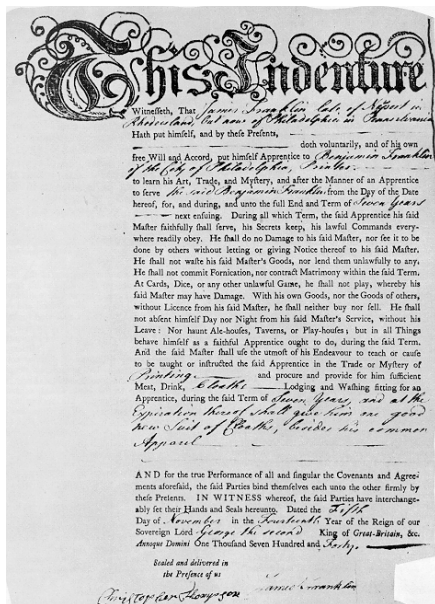 This Indenture
Witnesseth, That James Franklin late of Newport in
Rhodeisland, but now of Philadelphia in Pennsylvania
Hath put himself, and by these Presents,
doth voluntarily, and of his own
free Will and Accord, put himself Apprentice to Benjamin Franklin
of the City of Philadelphia, Printer
to learn his Art, Trade, and Mystery, and after the Manner of an Apprentice
to serve the said Benjamin Franklin from the Day of the Date
hereof, for, and during, and unto the full End and Term of Seven Years
next ensuing. During all which Term, the said Apprentice his said
Master faithfully shall serve, his Secrets keep, his lawful Commands every-
where readily obey. He shall do no Damage to his said Master, nor see it to be
done by others without letting or giving Notice thereof to his said Master.
He shall not waste his said Master's Goods, nor lend them unlawfully to any.
He shall not commit Fornication, nor contract Matrimony within the said Term.
At Cards, Dice, or any other unlawful Game, he shall not play, whereby his
said Master may have Damage. With his own Goods, nor the Goods of others,
without Licence from his said Master, he shall neither buy nor sell. He shall
not absent himself Day nor Night from his said Master's Service, without his
Leave: Nor haunt Ale-houses, Taverns, or Play-houses; but in all Things
behave himself as a faithful Apprentice ought to do, during the said Term.
And the said Master shall use the utmost of his Endeavour to teach or cause
to be taught or instructed the said Apprentice in the Trade or Mystery of
Printing and procure and provide for him sufficient
Meat, Drink, Cloaths Lodging and Washing fitting for an
Apprentice, during the said Term of Seven Years, and at the
Expiration thereof shall give him one good
new Suit of Cloaths, besides his common
Apparel
AND for the true Performance of all and singular the Covenants and Agree-
ments aforesaid, the said Parties bind themselves each unto the other firmly by
these Presents. IN WITNESS whereof, the said Parties have interchange-
ably set their Hands and Seals hereunto. Dated the Fifth
Day of November in the Fourteenth Year of the Reign of our
Sovereign Lord George the second King of Great-Britain, &c.
Annoque Domini One Thousand Seven Hundred and Forty.
Sealed and delivered in
the Presence of us
James Franklin
Christopher Thompson